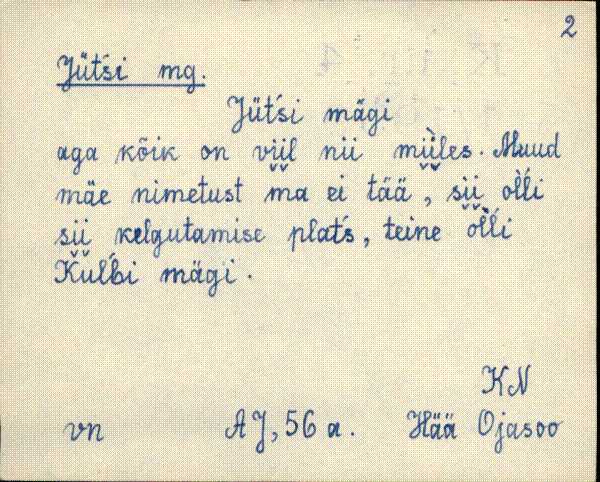 2
Jüt́si mg.
Jüt́si mägi
aga kõik on viil nii miìles. Muud
mäe nimetust ma ei tää, sii oĺli
sii kelgutamise plat́s, teine oĺli
Kuĺbi mägi.
KN
vn AJ, 56 a. Hää Ojasoo